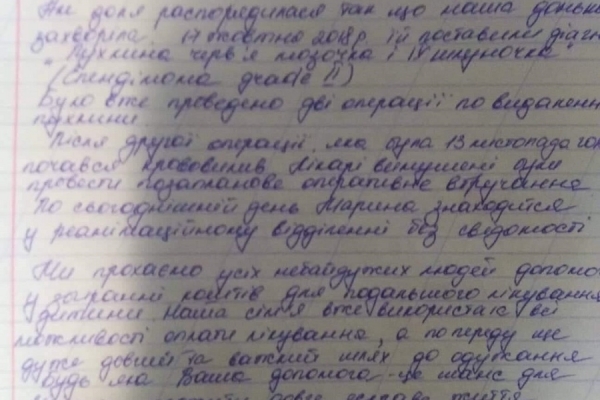 Але доля распорядилася так що наша донька
захворіла. 17 жовтня 2018р. їй поставили діагн
"Пухлина черв'я мозочка і IV шлуночка"
(Епендімома grade II)
Було вже проведено дві операції по видаленн
пухлини
Після другої операції, яка була 13 листопада
почався крововилив. Лікарі вимушені були
провести позапланове оперативне втручання
По сьогоднішній день Марина знаходится
у реанімаційному відділенні без свідомості
Ми прохаємо усіх небайдужих людей допомо
у збиранні коштів для подальшого лікування
дитини. Наша сім'я вже використає всі
можливості оплати лікування, а попереду ще
дуже довгий та важкий шлях до одужання
Будь яка Ваша допомога - це шанс для